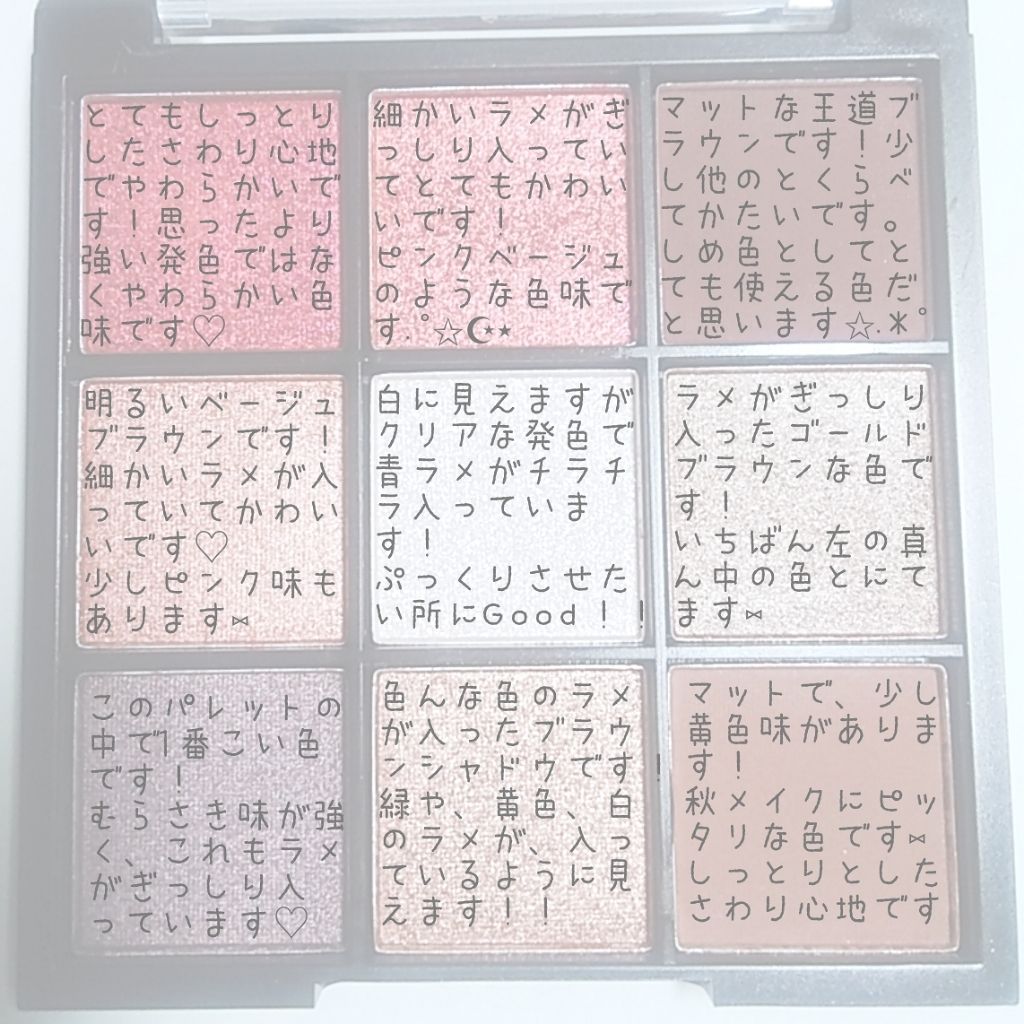 とてもしっとり
したさわり心地
でやわらかいで
す！思ったより
強い発色ではな
くやわらかい色
味です♡
細かいラメがぎ
っしり入ってい
てとてもかわい
いです！
ピンクベージュ
のような色味で
す.°☆☪⋆⋆
マットな王道ブ
ラウンです！少
し他のとくらべ
てかたいです。
しめ色としてと
ても使える色だ
と思います☆.*°
明るいベージュ
ブラウンです！
細かいラメが入
っていてかわい
いです♡
少しピンク味も
あります⋈
白に見えますが
クリアな発色で
青ラメがチラチ
ラ入っていま
す！
ぷっくりさせた
い所にGood！！
ラメがぎっしり
入ったゴールド
ブラウンな色で
す！
いちばん左の真
ん中の色とにて
ます⋈
このパレットの
中で1番こい色
です！
むらさき味が強
く、これもラメ
がぎっしり入
っています♡
色んな色のラメ
が入ったブラウ
ンシャドウです！
緑や、黄色、白
のラメが、入っ
ているように見
えます！！
マットで、少し
黄色味がありま
す！
秋メイクにピッ
タリな色です⋈
しっとりとした
さわり心地です